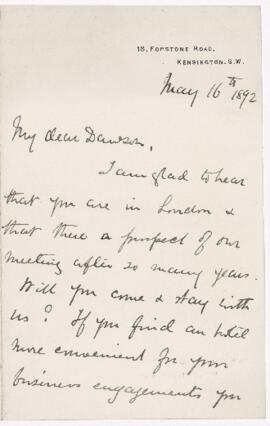 18, FOPSTONE ROAD,
KENSINGTON. S.W.
May 16th 1892
My dear Dawson,
I am glad to hear
that you are in London &
that there a prospect of our
meeting after so many years.
Will you come & stay with
us? If you find an hotel
more convenient for your
business engagements you